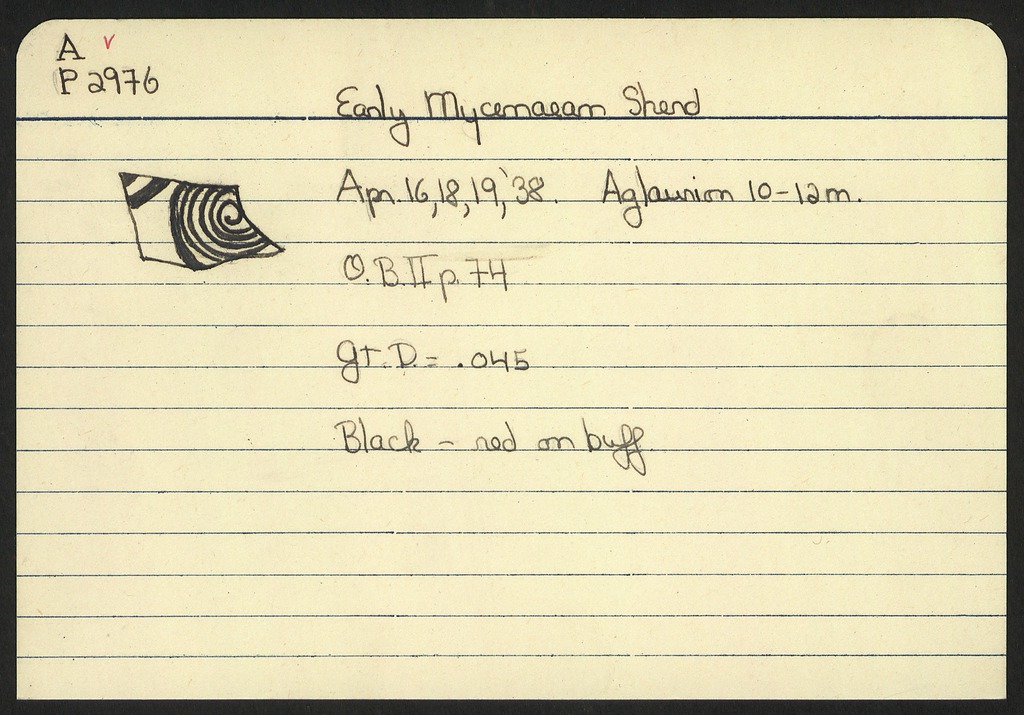 A v
P 2976
Early Mycenaean Sherd
Apr. 16, 18, 19, '38. Aglaurion 10-12m.
O.B.II p.74
gt. D. = .045
Black - red on buff